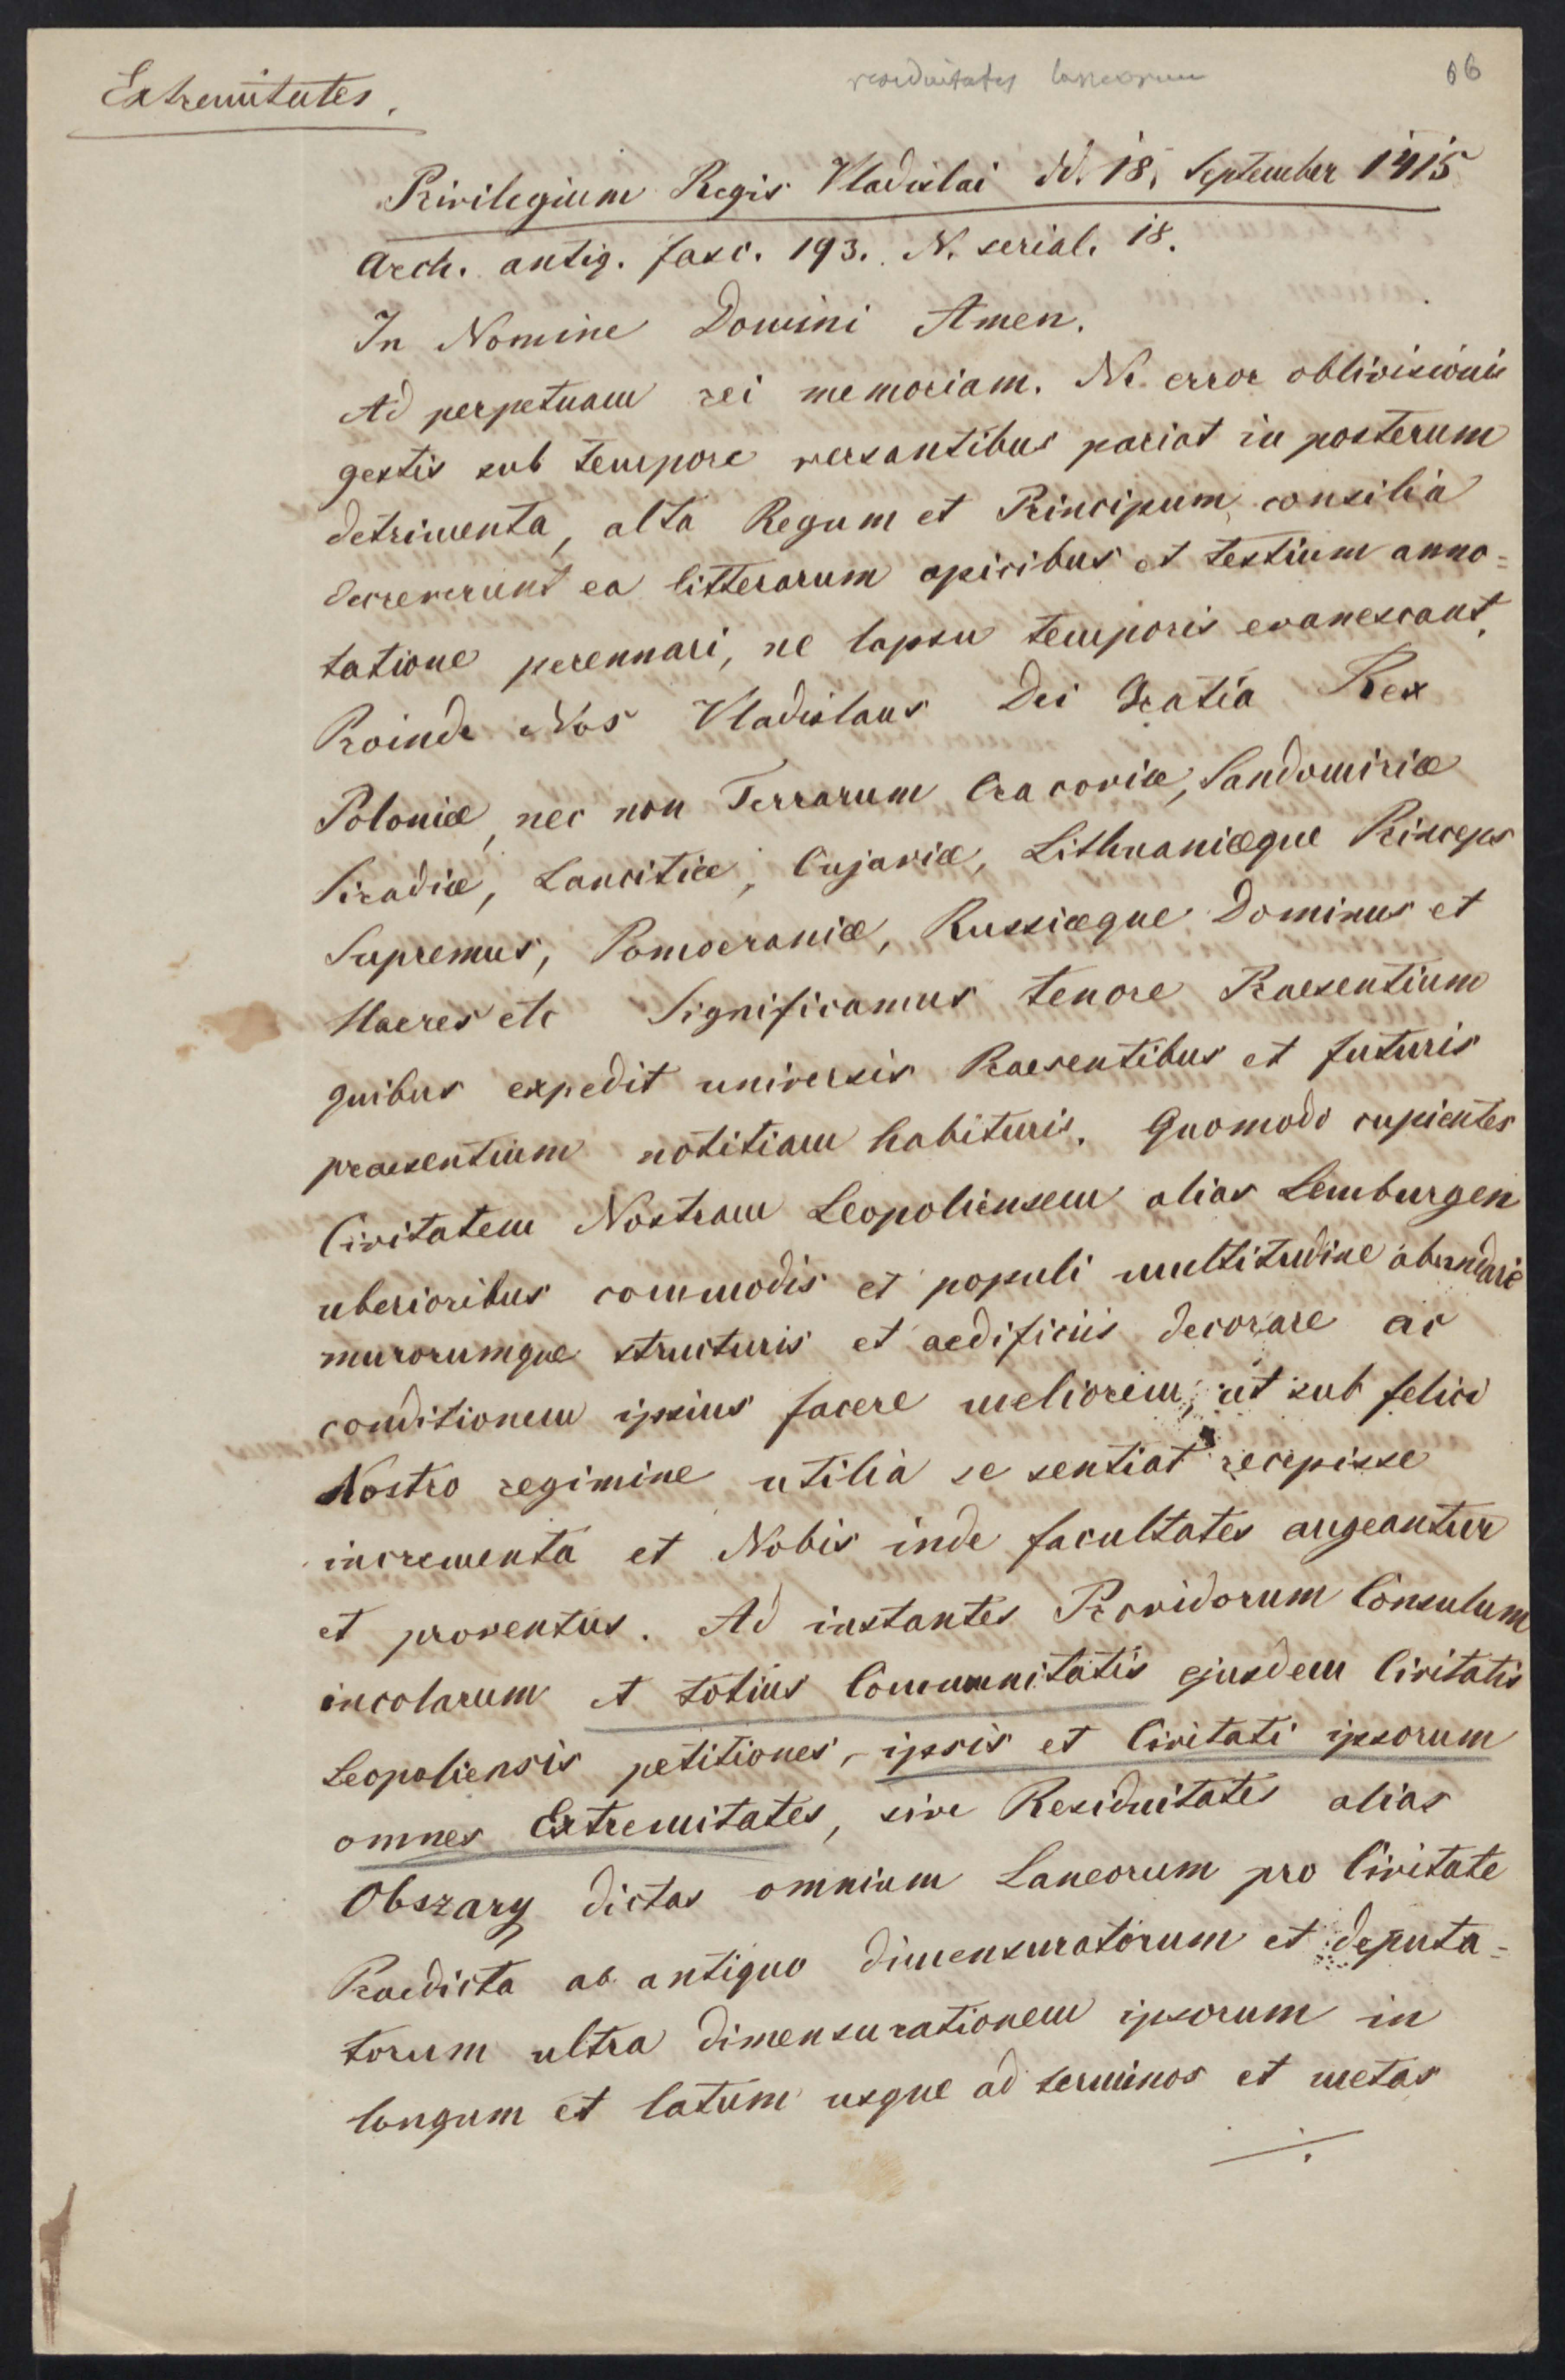 residuitates laneorum
66
Extremitates.
Privilegium Regis Vladislai dd. 18. September 1415
Arch. antiq. fasc. 193. N. serial. 18.
In Nomine Domini Amen.
Ad perpetuam rei memoriam. Ne error oblivisionis
gestis sub tempore versantibus pariat in posterum
detrimenta, alta Regum et Principum consilia
decreverunt ea litterarum apicibus et testium anno=
tatione perennari, ne lapsu temporis evanescant,
Proinde Nos Vladislaus Dei Gratia Rex
Poloniæ, nec non Terrarum Cracoviæ, Sandomiriæ
Siradiæ, Lancitiæ, Cujaviæ, Lithuaniæque Princeps
Supremus, Pomoeraniæ, Russiæque Dominus et
Haeres etc Significamus tenore Praesentium
quibus expedit universis Praesentibus et futuris
praesentium notitiam habituris. Quomodo cupientes
Civitatem Nostram Leopoliensem alias Lemburgen
uberioribus commodis et populi multitudine abundare
murorumque structuris et aedificiis decorare ac
conditionem ipsius facere meliorem, ut sub felici
Nostro regimine utilia se sentiat recepisse
incrementa et Nobis inde facultates augeantur
et proventus. Ad instantes Providorum Consulum
incolarum et totius Communitatis ejusdem Civitatis
Leopoliensis petitiones, ipsis et Civitati ipsorum
omnes Extremitates, sive Residuitates alias
Obszary dictas omnium Laneorum pro Civitate
Praedicta ab antiquo dimensuratorum et deputa=
torum ultra dimensurationem ipsorum in
longum et latum usque ad terminos et metas
./.